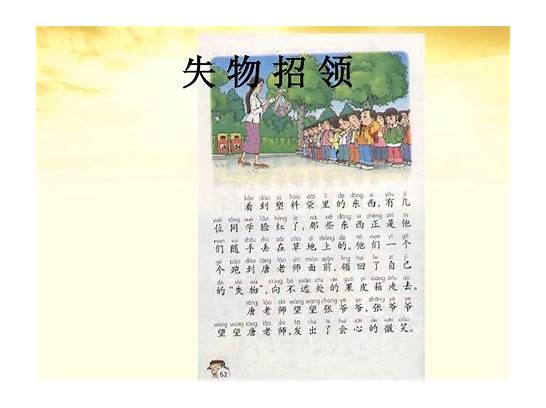 失物招领
看到塑料袋里的东西,有几
位同学脸红了,那些东西正是他
们随手丢在草地上的。他们一个
个跑到唐老师面前,领回了自己
的“失物”,向不远处的果皮箱走去。
唐老师望望张爷爷,张爷爷
望望唐老师,发出了会心的微笑。
52